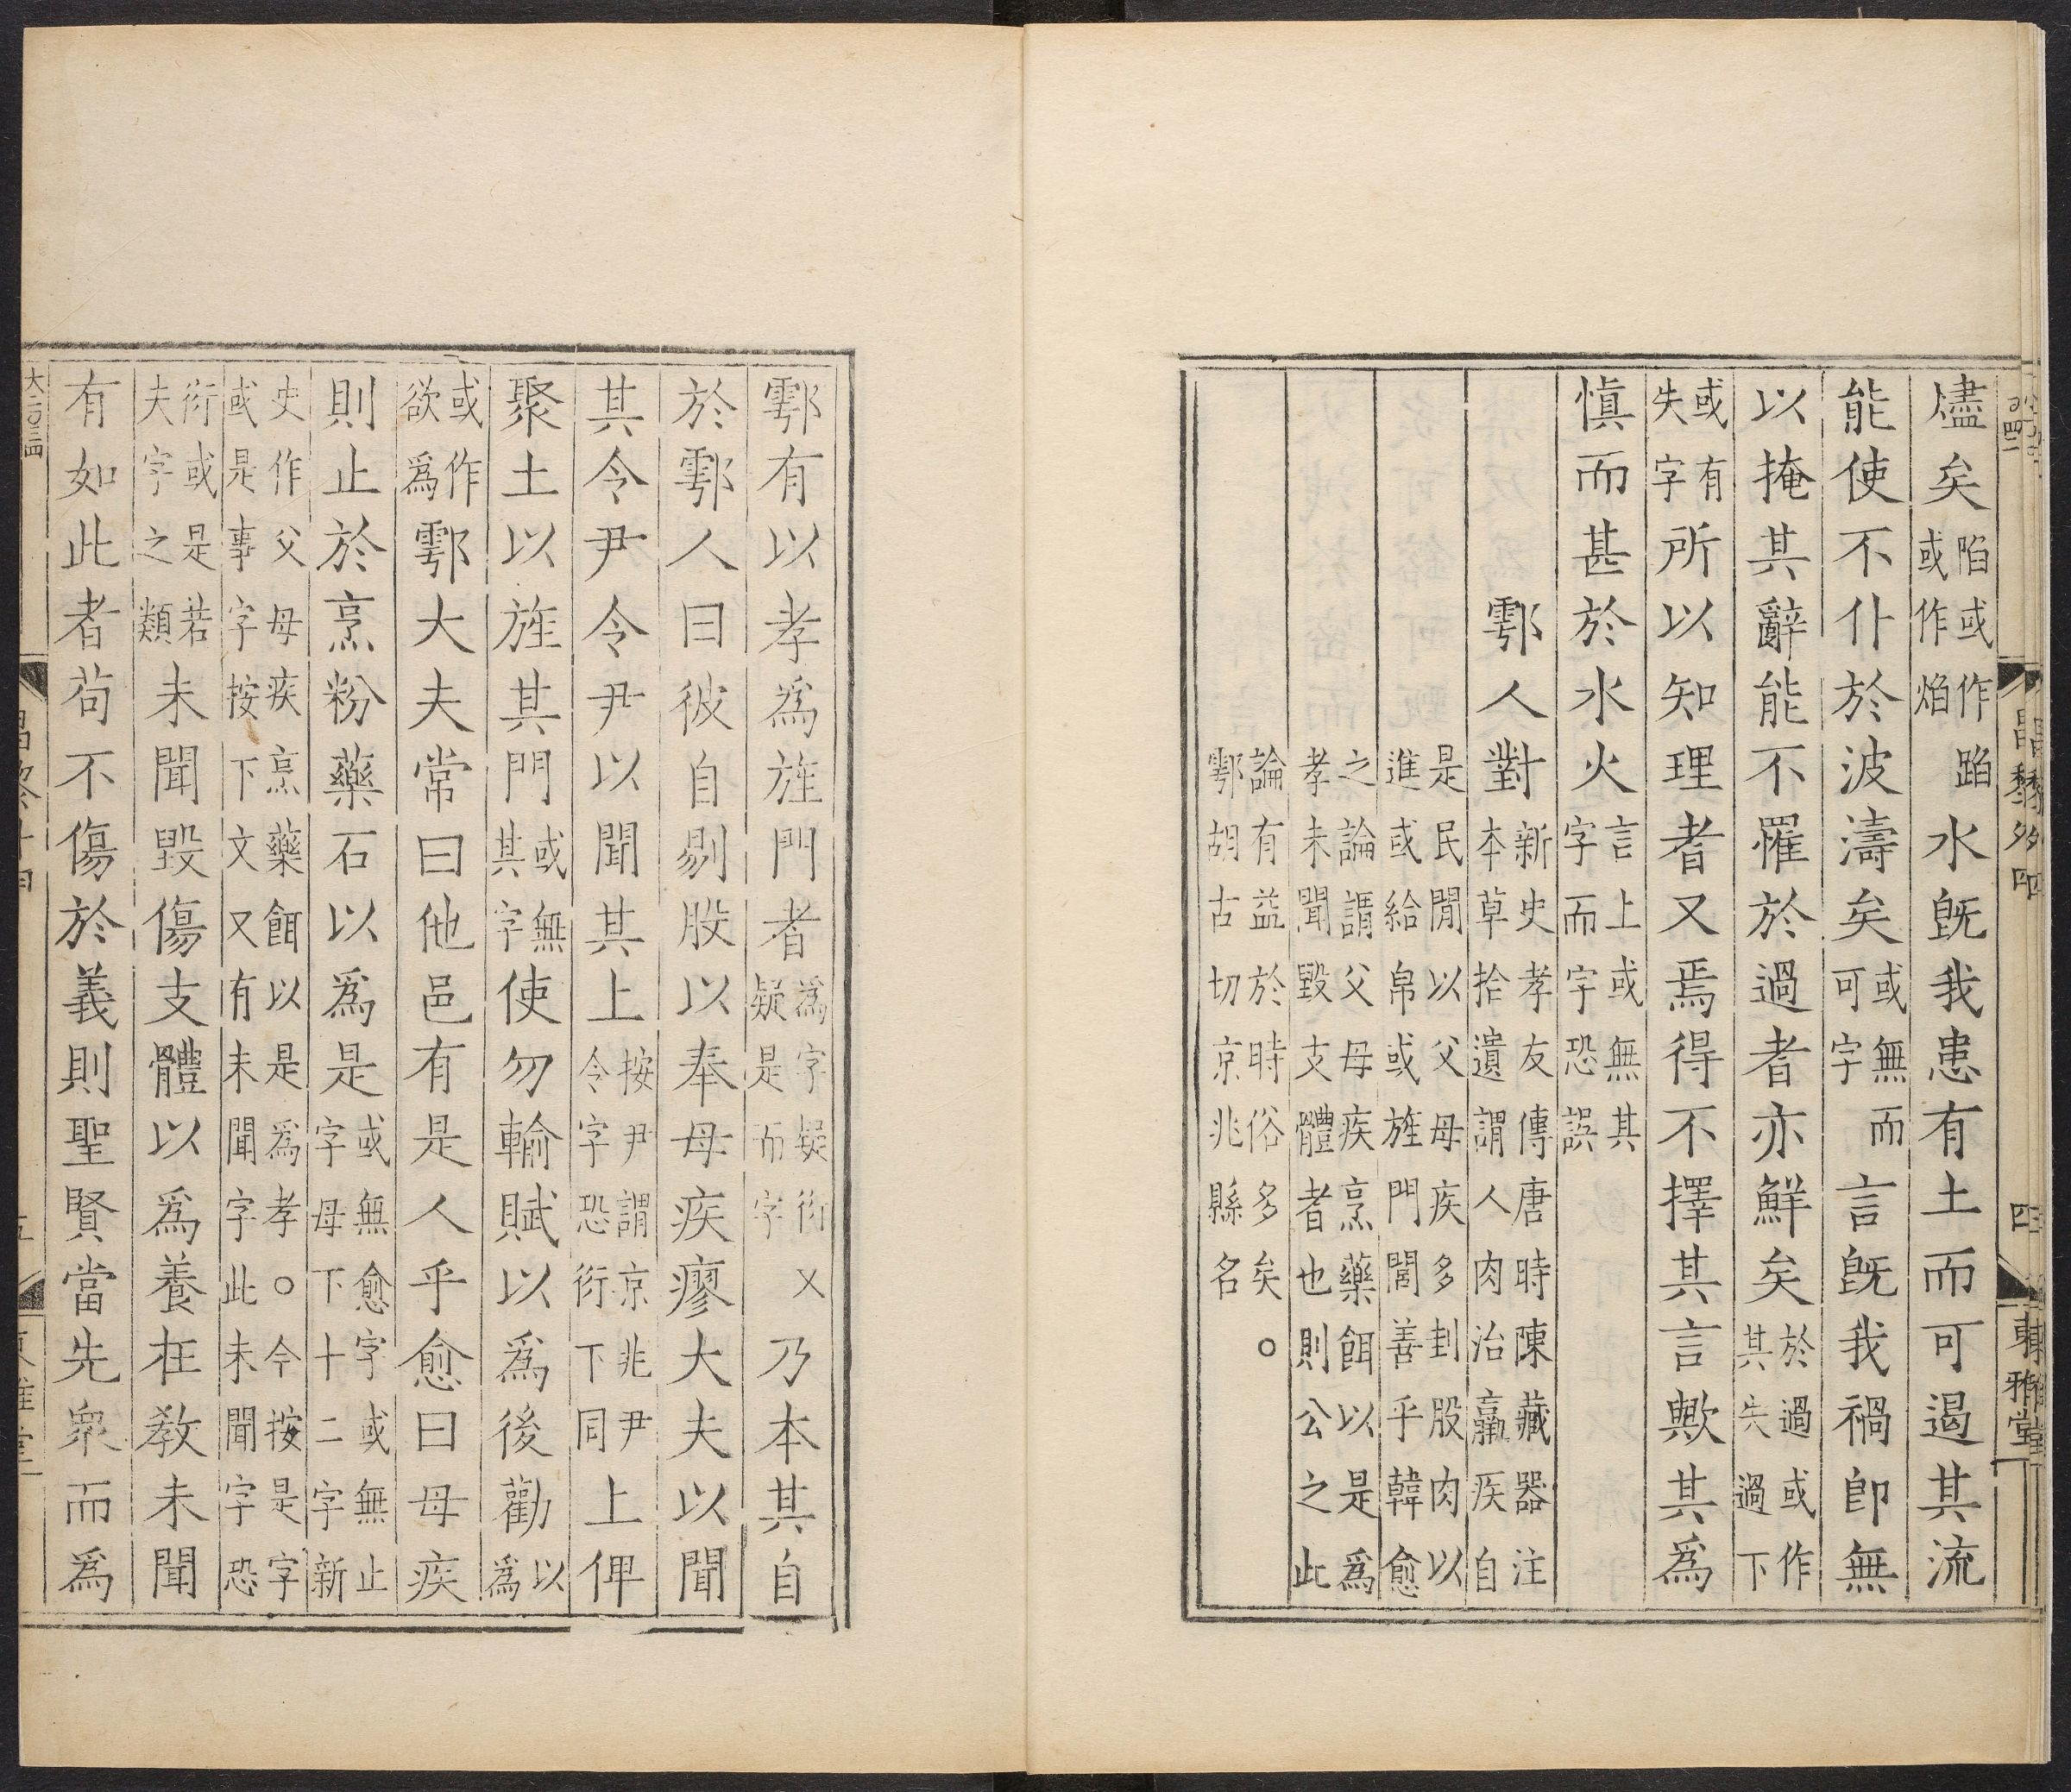 燼矣陷或作蹈或作焰水旣我患有土而可遏其流
能使不仆於波濤矣或無而可字言旣我禍卽無
以掩其辭能不罹於過者亦鮮矣於過或作其失過下
或有失字所以知理者又焉得不擇其言歟其爲
愼而甚於水火言上或無其字而字恐誤
鄠人對新史孝友傳唐時陳藏器注本草拾遺謂人肉治羸疾自
是民閒以父母疾多刲股肉以進或給帛或旌門閭善乎韓愈
之論謂父母疾烹藥餌以是爲孝未聞毀支體者也則公之此
論有益於時俗多矣○鄠胡古切京兆縣名
鄠有以孝爲旌門者爲字疑衍又疑是而字乃本其自
於鄠人曰彼自剔股以奉母疾瘳大夫以聞
其令尹令尹以聞其上按尹謂京兆尹令字恐衍下同上俾
聚土以旌其門或無其字使勿輸賦以爲後勸以爲
或作欲爲鄠大夫常曰他邑有是人乎愈曰母疾
則止於烹粉藥石以爲是或無愈字或無止字母下十二字新
史作父母疾烹藥餌以是爲孝○今按是字或是事字按下文又有未聞字此未聞字恐
衍或是若夫字之類未聞毀傷支體以爲養在敎未聞
有如此者苟不傷於義則聖賢當先衆而爲